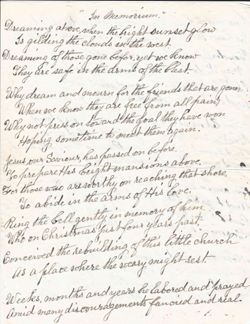 "In Memoriam"
Dreaming alone, when the bright sunset glow
Is gilding the clouds in the west
Dreaming of those gone before, yet we know
They are safe in the arms of the blest
Why dream and mourn for the friends that are gone
When we know they are free from all pain,
Why not press on toward the goal they have won
Hoping sometime to meet them again.
Jesus our Saviour, has passed on before
To prepare His bright mansions above,
For those who are worthy on reaching that shore
To abide in the arms of His love.
Ring the bell gently in memory of him
Who on Christmas just four years past
Conceived the rebuilding of this little church
As a place where the weary might rest
Weeks, months and years he labored and prayed
Amid many discouragements fancied and real.